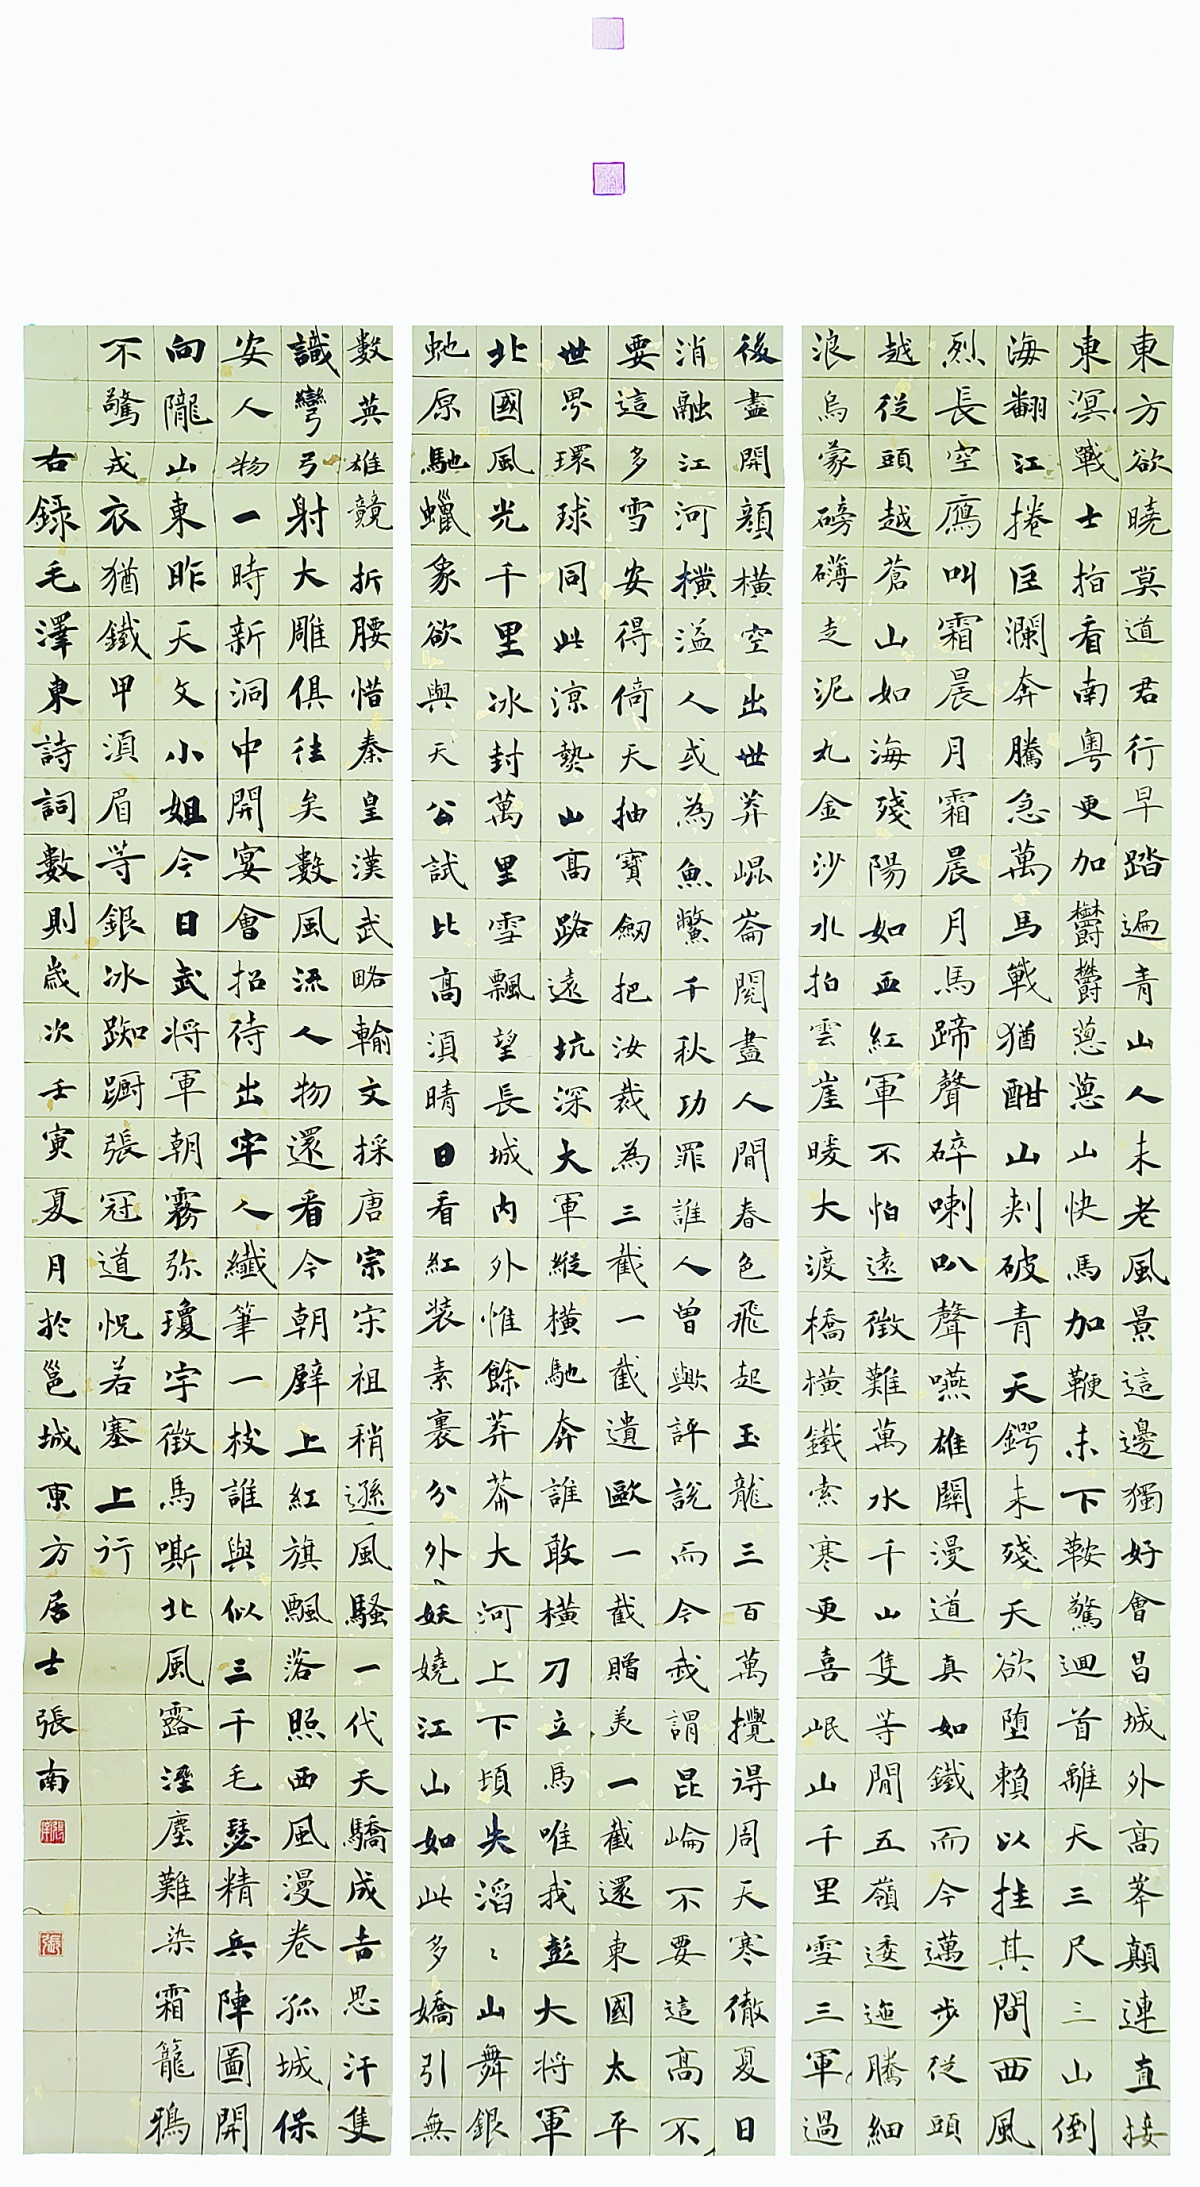 東方欲曉莫道君行早踏遍青山人未老風景這邊獨好會昌城外高峯顛連直接
東溟戰士指看南粵更加欝欝蔥蔥山快馬加鞭未下鞍驚迴首離天三尺三山倒
海翻江捲巨瀾奔騰急萬馬戰猶酣山刺破青天鍔未殘天欲堕賴以拄其間西風
烈長空鴈叫霜晨月霜晨月馬蹄聲碎喇叭聲嚥雄關漫道真如鐵而今邁步從頭
越從頭越蒼山如海殘陽如血紅軍不怕遠徵難萬水千山隻等閒五嶺逶迤騰細
浪烏蒙磅礴走泥丸金沙水拍雲崖暖大渡橋橫鐵索寒更喜岷山千里雪三軍過
後盡開顏橫空出世莽崐崙閱盡人間春色飛起玉龍三百萬攪得周天寒徹夏日
消融江河橫溢人或為魚鱉千秋功罪誰人曾與評說而今我謂昆崘不要這高不
要這多雪安得倚天抽寶劍把汝裁為三截一截遺歐一截贈美一截還東國太平
世界環球同此涼熱山高路遠坑深大軍縱橫馳奔誰敢橫刀立馬唯我彭大將軍
北國風光千里冰封萬里雪飄望長城內外惟餘莽莽大河上下頓失滔〻山舞銀
虵原馳蠟象欲與天公試比高須晴日看紅裝素裹分外妖嬈江山如此多嬌引無
數英雄競折腰惜秦皇漢武略輸文採唐宗宋祖稍遜風騷一代天驕成吉思汗隻
識彎弓射大雕俱往矣數風流人物還看今朝壁上紅旗飄落照西風漫卷孤城保
安人物一時新洞中開宴會招待出牢人纖筆一枝誰與似三千毛瑟精兵陣圖開
向隴山東昨天文小姐今日武將軍朝霧弥瓊宇徵馬嘶北風露溼塵難染霜籠鴉
不驚戎衣猶鐵甲須眉等銀冰踟躕張冠道怳若塞上行
右録毛澤東詩詞數則歲次壬寅夏月於邕城東方居士張南